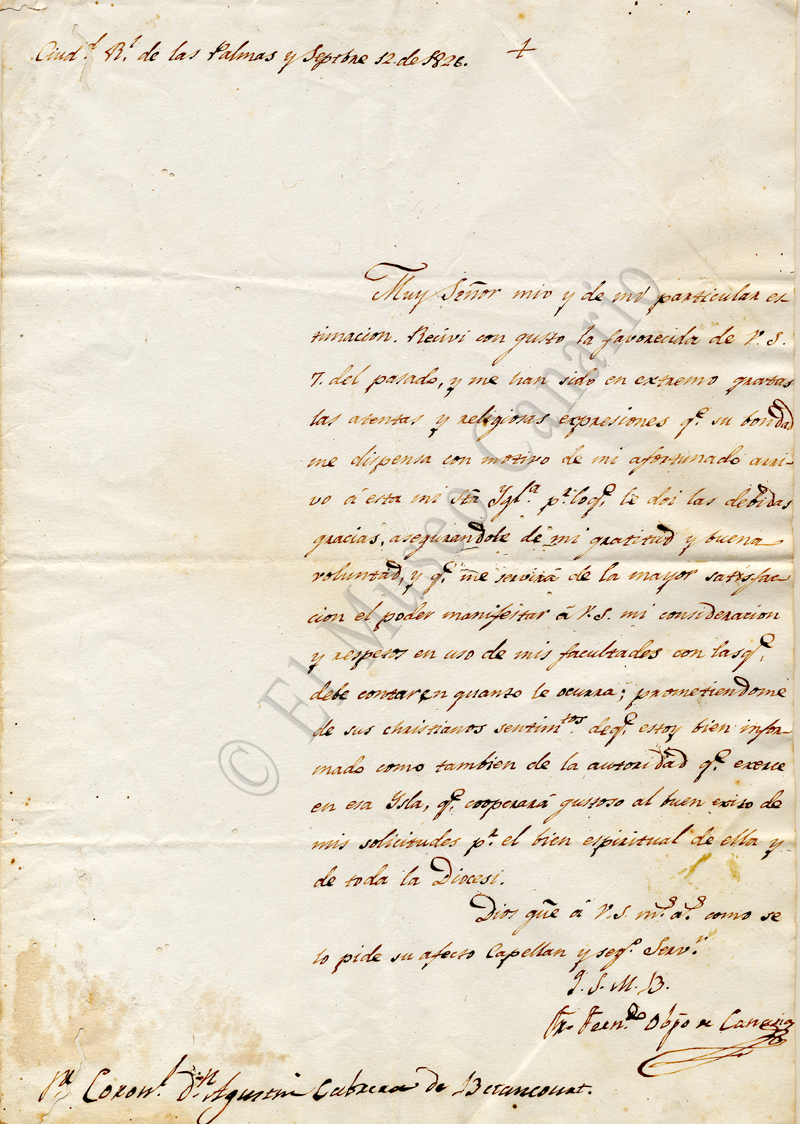 Ciud.d R.l de las Palmas y Septbre 12 de 1826. +
Muy Señor mio y de mi particular es-
timacion. Recivi con gusto la favorecida de V. S.
7. del pasado, y me han sido en extremo gratas
las atentas y religiosas expresiones q.e su bondad
me dispensa con motivo de mi afortunado arri-
vo á esta mi sta Ygl.a p.r loq.e le doi las debidas
gracias, asegurandole de mi gratitud y buena
voluntad, y q.e me servirá de la mayor satisfac-
cion el poder manifestar á V. S. mi consideracion
y respetos en uso de mis facultades con lasq.e
debe contar en quanto le ocurra; prometiendome
de sus christianos sentim.tos deq.e estoy bien infor-
mado como tambien de la autoridad q.e exerce
en esa Ysla, q.e cooperará gustoso al buen exito de
mis solicitudes p.r el bien espiritual de ella y
de toda la Diocesi.
Dios gũe á V. S. m.s a.s como se
lo pide su afecto Capellan y seg.o Serv.r
Q. S. M. B.
Fr. Fern.do Obpo de Canaria
S.r Coron.l d.n Agustin Cabrera de Betancourt.
© El Museo Canario